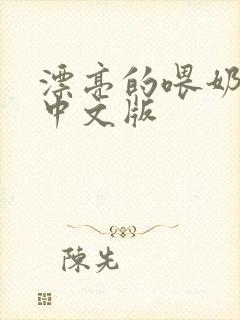 漂亮的喂奶
中文版
陳先